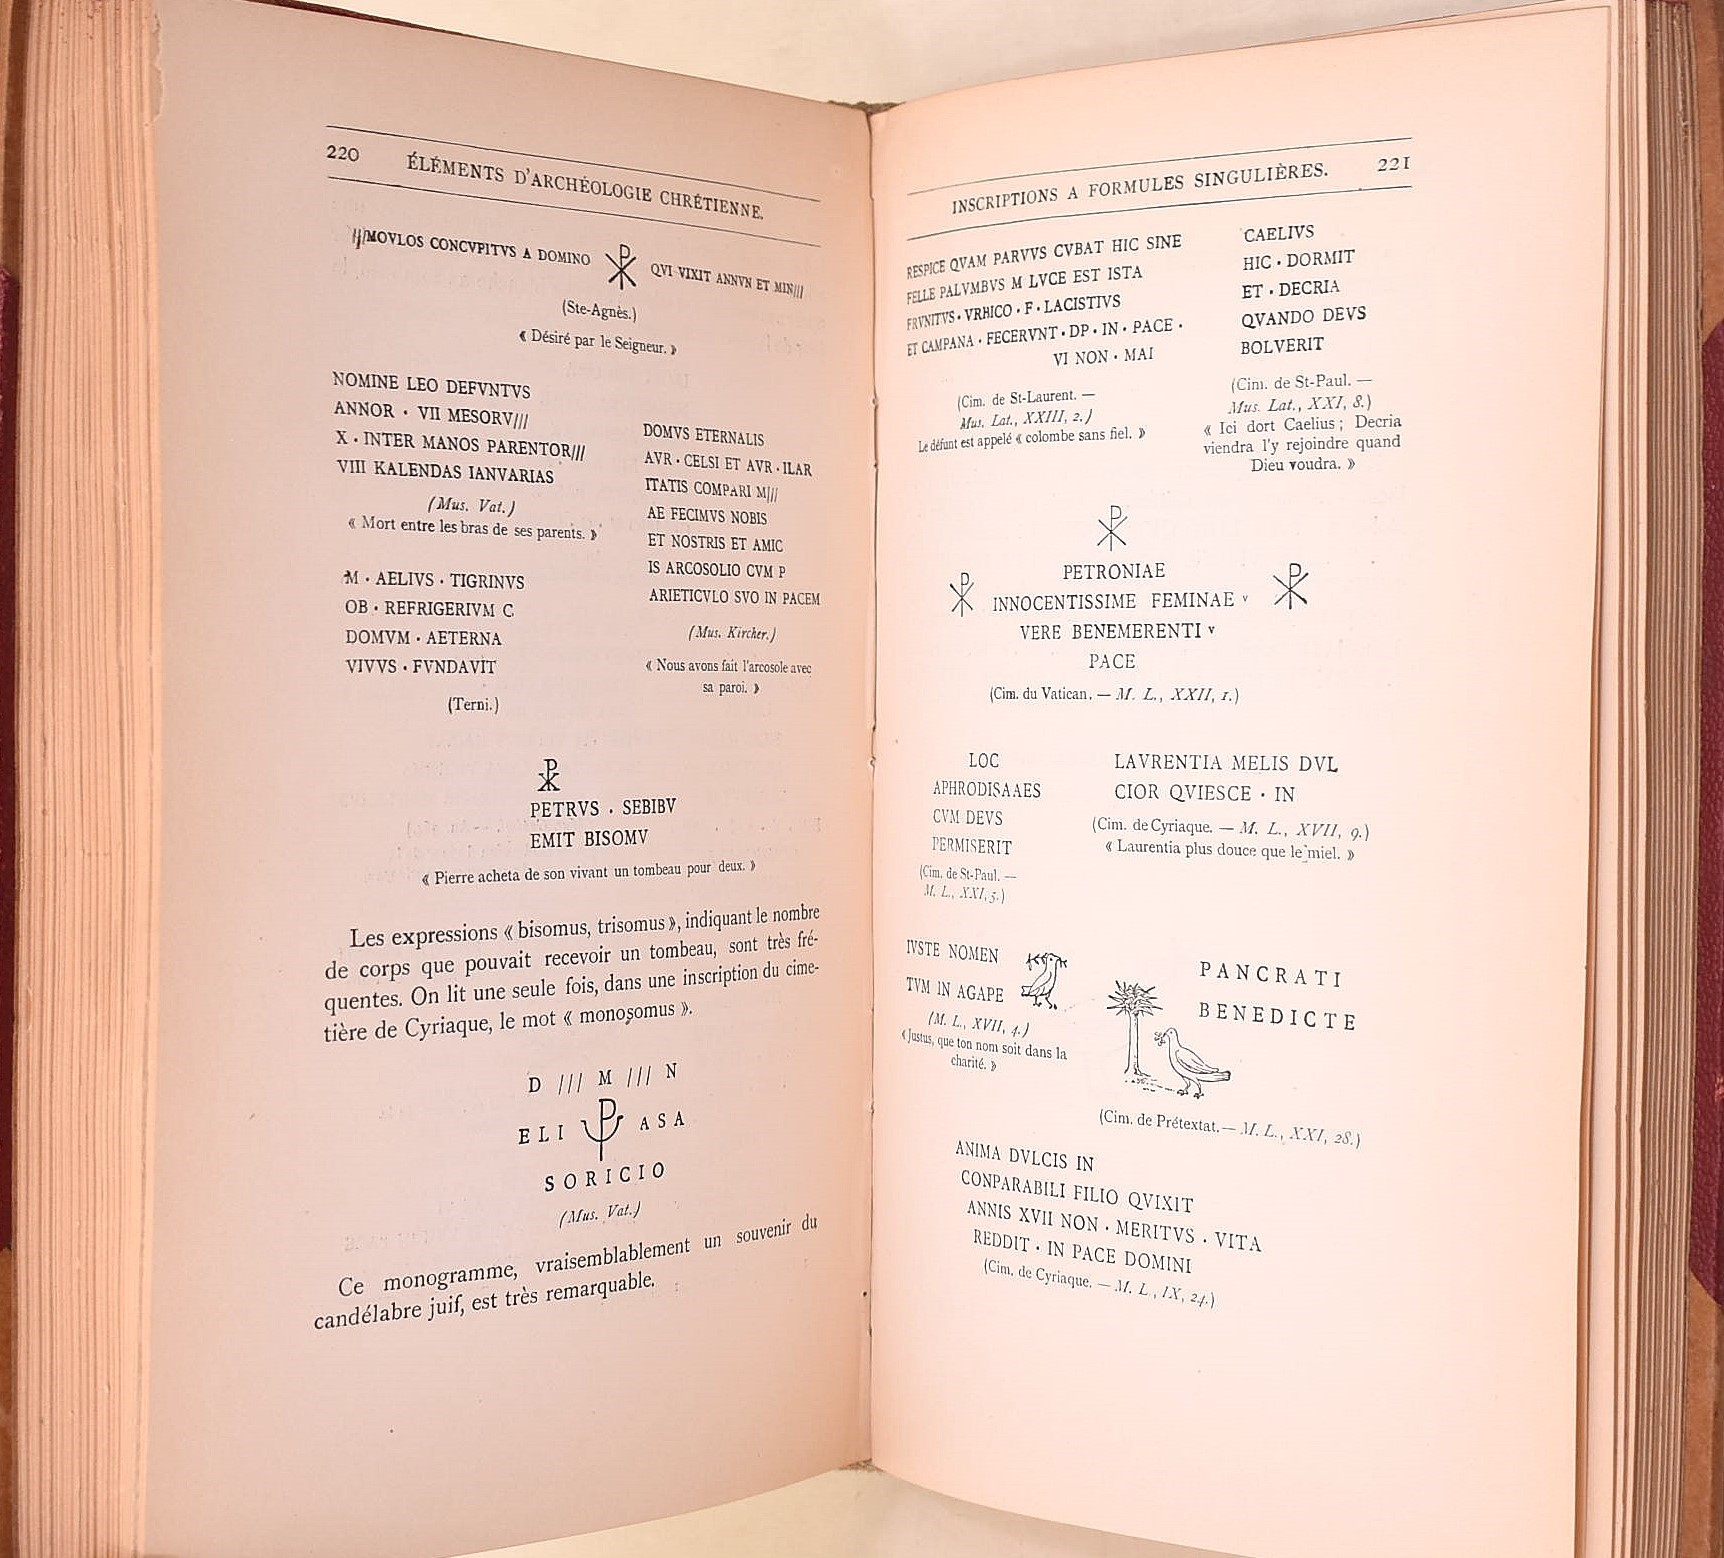 220 ÉLÉMENTS D'ARCHÉOLOGIE CHRÉTIENNE.
///MOVLOS CONCVPITVS A DOMINO ☧ QVI VIXIT ANNVN ET MIN///
(Ste-Agnès.)
« Désiré par le Seigneur. »
NOMINE LEO DEFVNTVS
ANNOR · VII MESORV///
X · INTER MANOS PARENTOR///
VIII KALENDAS IANVARIAS
(Mus. Vat.)
« Mort entre les bras de ses parents. »
M · AELIVS · TIGRINVS
OB · REFRIGERIVM C
DOMVM · AETERNA
VIVVS · FVNDAVIT
(Terni.)
DOMVS ETERNALIS
AVR · CELSI ET AVR · ILAR
ITATIS COMPARI M///
AE FECIMVS NOBIS
ET NOSTRIS ET AMIC
IS ARCOSOLIO CVM P
ARIETICVLO SVO IN PACEM
(Mus. Kircher.)
« Nous avons fait l'arcosole avec
sa paroi. »
PETRVS . SEBIBV
EMIT BISOMV
« Pierre acheta de son vivant un tombeau pour deux. »
Les expressions « bisomus, trisomus », indiquant le nombre
de corps que pouvait recevoir un tombeau, sont très fré-
quentes. On lit une seule fois, dans une inscription du cime-
tière de Cyriaque, le mot « monosomus ».
D /// M /// N
ELI ASA
SORICIO
(Mus. Vat.)
Ce monogramme, vraisemblablement un souvenir du
candélabre juif, est très remarquable.
INSCRIPTIONS A FORMULES SINGULIÈRES. 221
RESPICE QVAM PARVVS CVBAT HIC SINE
FELLE PALVMBVS M LVCE EST ISTA
FRVNITVS · VRBICO · F · LACISTIVS
ET CAMPANA · FECERVNT · DP · IN · PACE ·
VI NON · MAI
(Cim. de St-Laurent. —
Mus. Lat., XXIII, 2.)
Le défunt est appelé « colombe sans fiel. »
CAELIVS
HIC · DORMIT
ET · DECRIA
QVANDO DEVS
BOLVERIT
(Cim. de St-Paul. —
Mus. Lat., XXI, 8.)
« Ici dort Caelius ; Decria
viendra l'y rejoindre quand
Dieu voudra. »
PETRONIAE
INNOCENTISSIME FEMINAE v
VERE BENEMERENTI v
PACE
(Cim. du Vatican. — M. L., XXII, 1.)
LOC
APHRODISAAES
CVM DEVS
PERMISERIT
(Cim. de St-Paul. —
M. L., XXI, 5.)
LAVRENTIA MELIS DVL
CIOR QVIESCE · IN
(Cim. de Cyriaque. — M. L., XVII, 9.)
« Laurentia plus douce que le miel. »
IVSTE NOMEN
TVM IN AGAPE
(M. L., XVII, 4.)
« Justus, que ton nom soit dans la
charité. »
PANCRATI
BENEDICTE
(Cim. de Prétextat. — M. L., XXI, 28.)
ANIMA DVLCIS IN
CONPARABILI FILIO QVIXIT
ANNIS XVII NON · MERITVS · VITA
REDDIT · IN PACE DOMINI
(Cim. de Cyriaque. — M. L , IX, 24.)